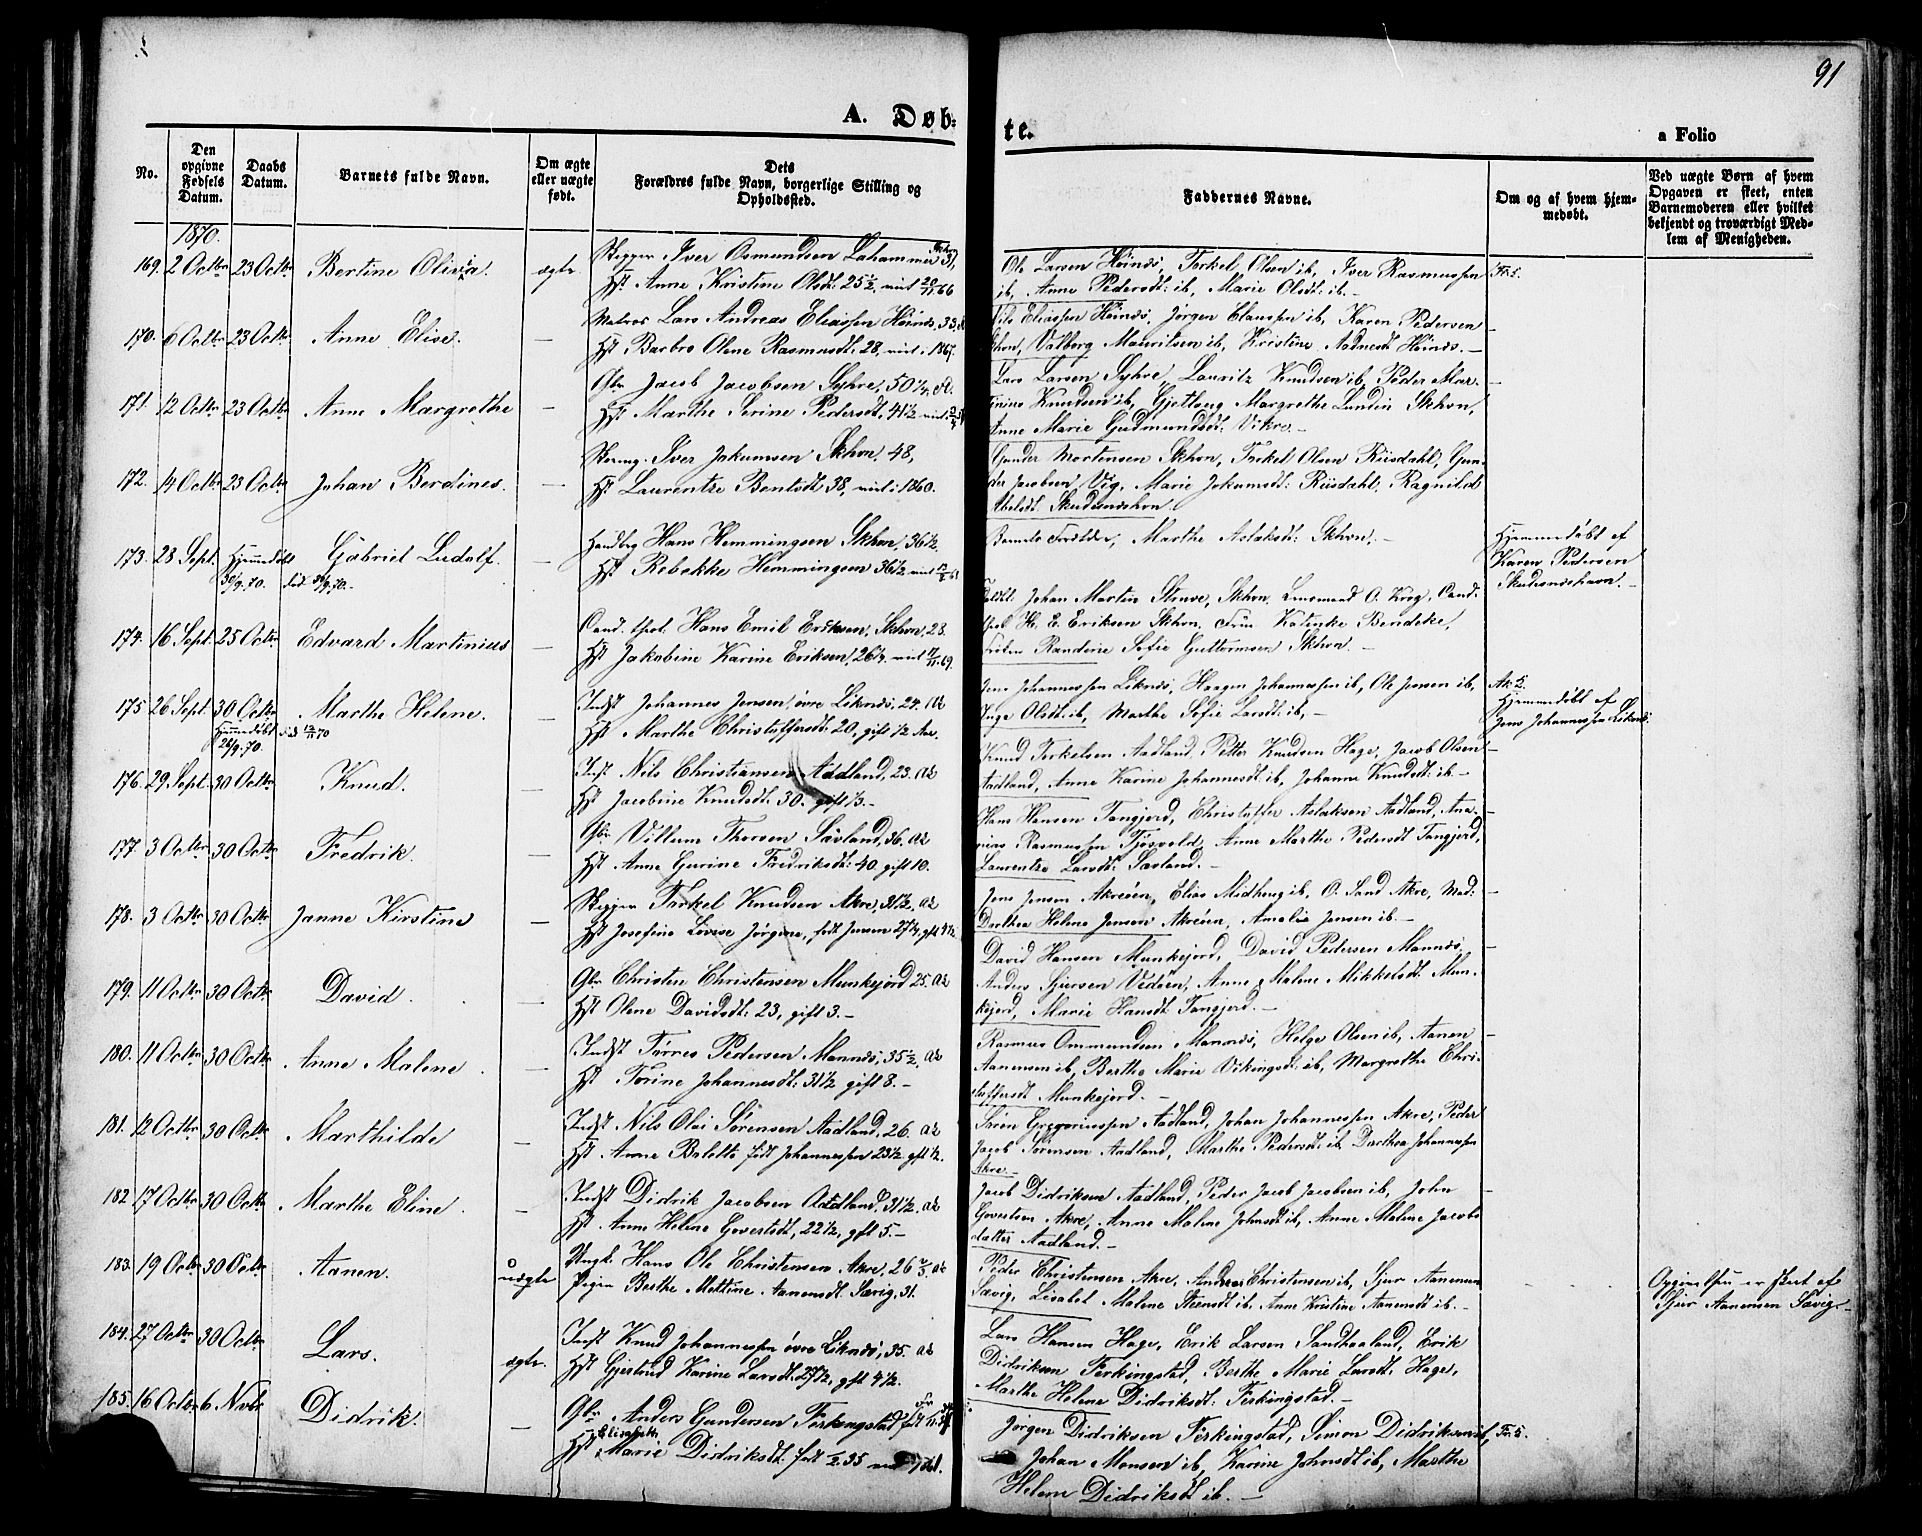 91
A. Døb-te.
a Folio
No.
Den opgivne Fødsels Datum.
Daabs Datum.
Barnets fulde Navn.
Om ægte eller uægte født.
Dets Forældres fulde Navn, borgerlige Stilling og Opholdssted.
Faddernes Navne.
Om og af hvem hjemmedøbt.
Ved uægte Børn af hvem Opgaven er skeet, enten Barnemoderen eller hvilket bekjendt og troværdigt Medlem af Menigheden.
1870.
169. 2 Octbr 23 Octbr Bertine Olivia. ægte
Skipper Iver Osmundsen Lahammer 37,
Hst. Anne Kristine Olsdt: 25½, viet 20/11.66
Ole Larsen Høinæs, Torkel Olsen ib, Iver Rasmussen
ib, Anne Pedersdt: ib, Marie Olsdt: ib.
170. 6 Octbr 23 Octbr Anne Elise. —
Matros Lars Andreas Eliassen Høinæs, 33,
Hst Barbro Olene Rasmusdt: 28, viet i 1867.
Nils Eliassen Høinæs, Jørgen Clausen ib, Karen Pedersen
Skhvn, Valborg Mauritsen ib, Kristine Aadnesdt Høinæs. —
171. 12 Octbr 23 Octbr Anne Margrethe —
Gbr Jacob Jacobsen Syhre, 50¼,
Hst Marthe Serine Pedersdt: 41½
Lars Larsen Syhre, Lauritz Knudsen ib, Peder Mar-
tinius Knudsen ib, Gjetborg Margrethe Lundin Skhvn,
Anne Marie Gudmundsdt: Vikre. —
172. 14 Octbr 23 Octbr Johan Berdines. —
Iver Jokumsen Skhvn, 48,
Hst Laurentze Bentsdt 38, viet i 1860.
Gunder Mortensen Skhvn, Torkel Olsen Riisdahl, Gun-
der Jacobsen Vig, Marie Jokumsdt: Riisdahl, Ragnild
Skudesneshvn.
173. 28 Sept. Hjemmedøbt Gabriel Ludolf. —
30/9.70. død 30/9.70. —
Hans Hemmingsen Skhvn, 36½
Hst Rebekke Hemmingsen 36½
Barnets Forældre, Marthe Aslaksdt: Skhvn. —
Hjemmedøbt af
Karen Pedersen
Skudesneshavn. —
174. 16 Sept 25 Octbr Edvard Martinius —
Cand. theol. Hans Emil Eriksen, Skhvn, 28.
Hst Jakobine Karine Eriksen, 26¼, viet 17/11.69.
Johan Martin Skhvn, Lensmand O. Krog, Cand.
theol H. E. Eriksen Skhvn, Fru Katinke Bendeke,
Frøken Randine Sofie Guttormsen Skhvn. —
175 26 Sept. 30 Octbr Marthe Helene. —
Hjemmedøbt
26/9.70.
Indst Johannes Jensen, øvre Liknæs, 24. Ak
Hst Marthe Christoffersdt: 20, gift ½ Aar.
Jens Johannessen Liknæs, Haagen Johannessen ib, Ole Jensen ib,
Inge Olsdt: ib, Marthe Sofie Larsdt: ib, —
Hjemmedøbt af
Jens Johannessen Liknæs
176. 29 Sept. 30 Octbr Knud. —
Indst Nils Christiansen Aadland, 23. Ak
Hst Jacobine Knudsdt: 30. gift ⅓. —
Knud Torkelsen Aadland, Petter Knudsen Hage, Jacob Olsen
Aadland, Anne Karine Johannesdt ib, Johanne Knudsdt: ib. —
177. 3 Octbr 30 Octbr Fredrik. —
Gbr Villum Thorsen Sævland, 36. Ak
Hst Anne Gurine Fredriksdt: 40. gift 10.
Hans Hansen Tangjerd, Christoffer Aslaksen Aadland, Ana-
nias Rasmussen Tjøsvold, Anne Marthe Pedersdt Tangjerd,
Laurentze Larsdt: Sævland. —
178. 3 Octbr 30 Octbr Janne Kirstine —
Skipper Torkel Knudsen Akre, 31½, Ak
Hst Josefine Lovise Jørgine, født Jensen 27¼, gft 4½
Jens Jensen Akreøen, Elias Midhaug ib, O. Sand Akre, Mad:
Dorthea Helene Jensen Akreøen, Amalie Jensen ib. —
179. 11 Octbr 30 Octbr David. —
Gbr Christen Christensen Munkejord 25. Ak
Hst Olene Davidsdt: 23, gift 3. —
David Hansen Munkejord, David Pedersen Mannæs,
Anders Sjursen Vedøen, Anne Malene Mikkelsdt: Mun-
kejord, Marie Hansdt Tangjerd. —
180. 11 Octbr 30 Octbr Anne Malene. —
Indst Tørres Pedersen Mannæs, 35½, Ak
Hst Torine Johannesdt: 31½ gift 8. —
Rasmus Ommundsen Mannæs, Helge Olsen ib, Aanen
Aanensen ib, Berthe Marie Vikingsdt: ib, Margrethe Chri-
stoffersdt Munkejord. —
181. 12 Octbr 30 Octbr Marthilde —
Indst Nils Olai Sørensen Aadland, 26. Ak
Hst Anne født Johannessen 23½ gft ½.
Søren Gregoriussen Aadland, Johan Johannessen Akre, Peder
Jacob Sørensen Aadland, Marthe Pedersdt: ib, Dorthea Johannessen
Akre. —
182 17 Octbr 30 Octbr Marthe Eline. —
Indst Didrik Jacobsen Aadland, 31½. Ak
Hst. Anne Helene Govertsdt, 22½, gft 5. —
Jacob Didriksen Aadland, Peder Jacob Jacobsen ib, John
Govertsen Akre, Anne Malene Johnsdt ib, Anne Malene Jacobs-
datter Aadland. —
183. 19 Octbr 30 Octbr Aanen. uægte
Ungk. Hans Ole Christensen Akre, 26⅔. Ak
Pigen Berthe Mettine Aanensdt. Sævig, 31.
Peder Christensen Akre, Andreas Christensen ib, Sjur Aanensen
Sævig, Lisabet Malene Steensdt ib, Anne Kristine Aanensdt ib. —
Opgivelsen er skeet af
Sjur Aanensen Sævig. —
184. 27 Octbr 30 Octbr Lars. ægte.
Indst Knud Johannessen øvre Liknæs, 35. Ak
Hst Gjertrud Karine Larsdt: 27½, gft 4½.
Lars Hansen Hage, Erik Larsen Sandhaaland, Erik
Didriksen Ferkingstad, Berthe Marie Larsdt: Hage,
Marthe Helene Didriksdt: Ferkingstad. —
185. 16 Octbr 6 Novbr Didrik. —
Gbr Anders Gundersen Ferkingstad
Hst Elisabeth Marie Didriksdt: født ½.35 1861.
Jørgen Didriksen Ferkingstad, Simon Didriksen ib,
Johan Monsen ib, Karine Johnsdt ib, Marthe
Helene Didriksdt ib. —